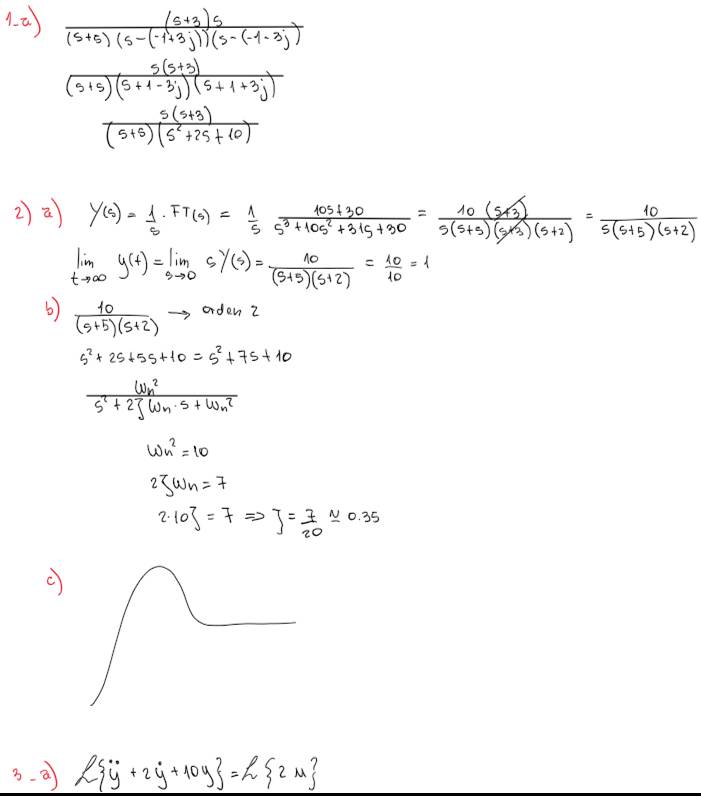 1-a) (s+3)s / (s+5)(s-(-1+3j))(s-(-1-3j))
s(s+3) / (s+5)(s+1-3j)(s+1+3j)
s(s+3) / (s+5)(s²+2s+10)
2) a) Y(s) = 1/s · FT(s) = 1/s (10s+30)/(s³+10s²+31s+30) = 10(s+3)/(s(s+5)(s+3)(s+2)) = 10/(s(s+5)(s+2))
lim t→∞ y(t) = lim s→0 sY(s) = 10/((s+5)(s+2)) = 10/10 = 1
b) 10/((s+5)(s+2)) → orden 2
s²+2s+5s+10 = s²+7s+10
Wn² / s²+2ζWn·s+Wn²
Wn² = 10
2ζWn = 7
2·10ζ = 7 => ζ = 7/20 ≃ 0.35
c)
3-a) L{ÿ + 2ẏ + 10y} = L{2u}